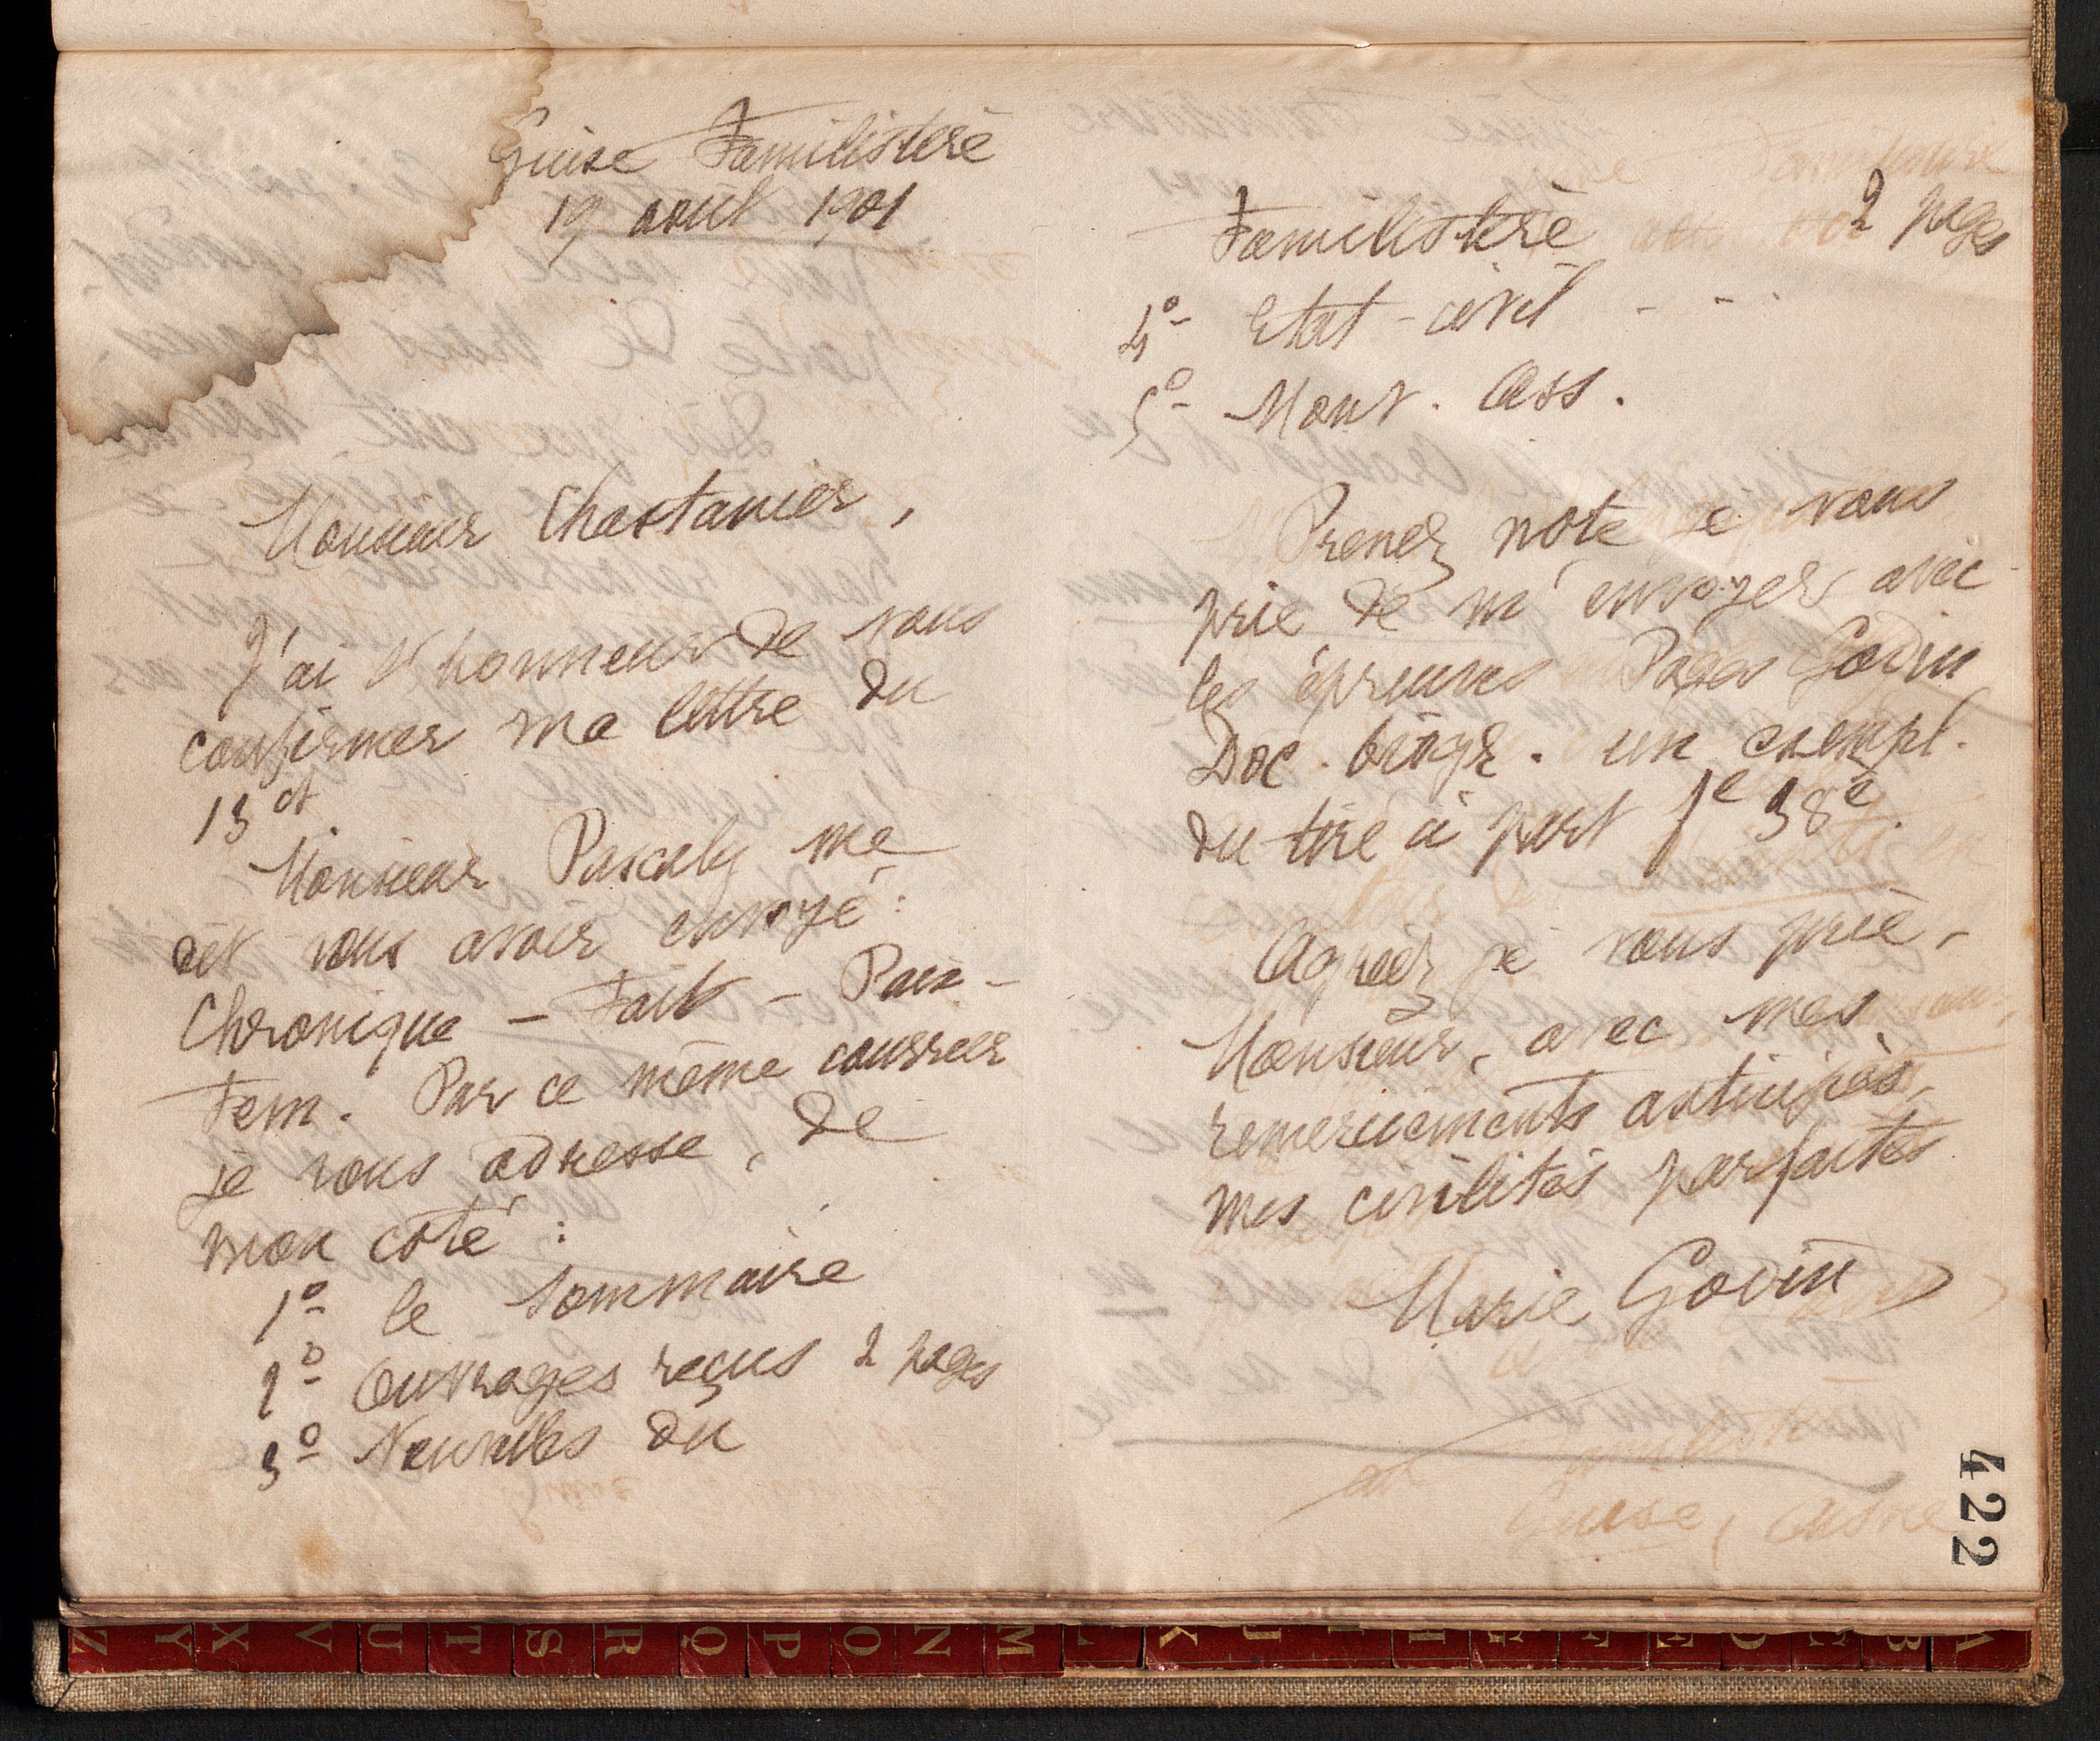 Guise Familistère
19 août 1901
Monsieur Chastanier,
J'ai l'honneur de vous
confirmer ma lettre du
13 ct
Monsieur Pascaly me
dit vous avoir envoyé :
Chronique – Faits – Paix –
Fem. Par ce même courrier
je vous adresse, de
mon côté :
1º le sommaire
2º Ouvrages reçus 2 pages
3º Nouvelles du
Familistère 2 pages
4º Etat-civil - - .
5º Mouv. Ass.
Prenez note je vous
prie de m'envoyer avec
les épreuves Pages Godin
Doc. biogr. un exempl.
du tiré à part fe 38e
Agréez je vous prie,
Monsieur, avec mes
remerciements anticipés,
mes civilités parfaites
Marie Godin
Guise, Aisne
422
A
B
D
E
F
G
H
I
J
K
L
M
N
O
P
Q
R
S
T
U
V
X
Y
Z